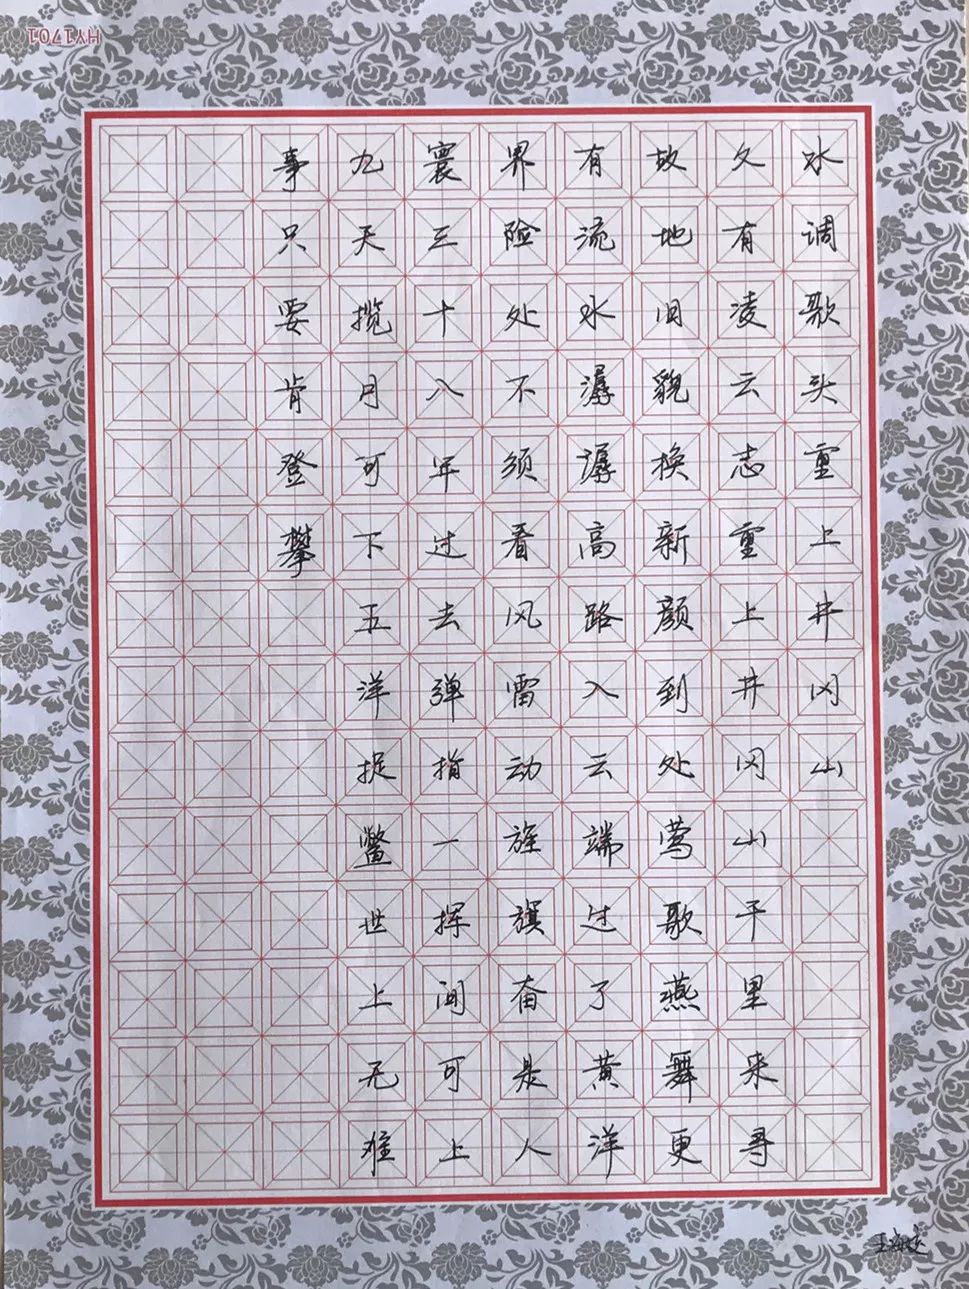 水调歌头重上井冈山
久有凌云志重上井冈山千里来寻
故地旧貌换新颜到处莺歌燕舞更
有流水潺潺高路入云端过了黄洋
界险处不须看风雷动旌旗奋是人
寰三十八年过去弹指一挥间可上
九天揽月可下五洋捉鳖世上无难
事只要肯登攀
HY1701